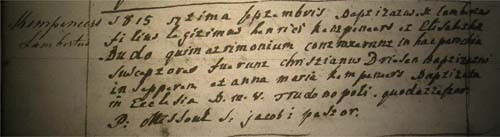 Kempeners
Lambertus
1815 septima septembris Baptizatus est Lambertus
filius legitimus henrici kempeners et Elisabetha
Budo qui matrimonium contraxerunt in hac parochia
susceptores fuerunt christianus Driesen Baptizatus
in Zepperen et anna maria kempeners Baptizata
in Ecclesia B. m. V. Trudonopoli. quod attestor
P. S. jacobi pastor.